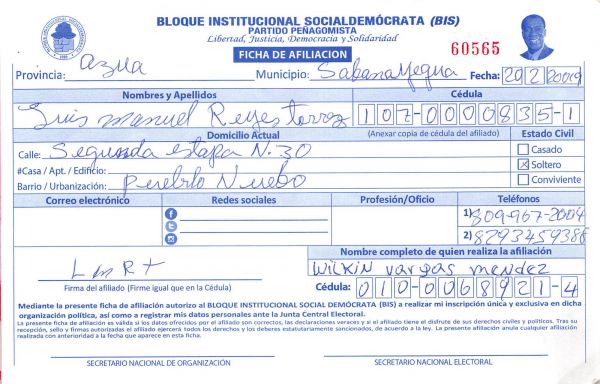 BLOQUE INSTITUCIONAL SOCIALDEMÓCRATA (BIS)
PARTIDO PEÑAGOMISTA
Libertad, Justicia, Democracia y Solidaridad
FICHA DE AFILIACION
60565
Provincia: Azua Municipio: Sabana Yegua Fecha:
Nombres y Apellidos Cédula
Luis manuel Reyes torrez 107-0000835-1
Domicilio Actual (Anexar copia de cédula del afiliado) Estado Civil
Calle: Segunda etapa N. 30 Casado
#Casa / Apt. / Edificio: Soltero
Barrio / Urbanización: Pueblo Nuebo Conviviente
Correo electrónico Redes sociales Profesión/Oficio Teléfonos
1) 809-967-2004
2) 8293459388
Nombre completo de quien realiza la afiliación
LmRt WilKin vargas mendez
Firma del afiliado (Firme igual que en la Cédula) Cédula: 010-0068921-4
Mediante la presente ficha de afiliación autorizo al BLOQUE INSTITUCIONAL SOCIAL DEMÓCRATA (BIS) a realizar mi inscripción única y exclusiva en dicha
organización política, así como a registrar mis datos personales ante la Junta Central Electoral.
La presente ficha de afiliación es válida si los datos ofrecidos por el afiliado son correctos, las declaraciones veraces y si el afiliado tiene el disfrute de sus derechos civiles y políticos. Tras su
recepción, sello y firmas autorizadas el afiliado ejercen todos los derechos y los deberes estatutariamente sancionados, de acuerdo a la ley. La presente afiliación anula cualquier afiliación
realizada con anterioridad a la fecha que aparece en esta ficha.
SECRETARIO NACIONAL DE ORGANIZACIÓN SECRETARIO NACIONAL ELECTORAL